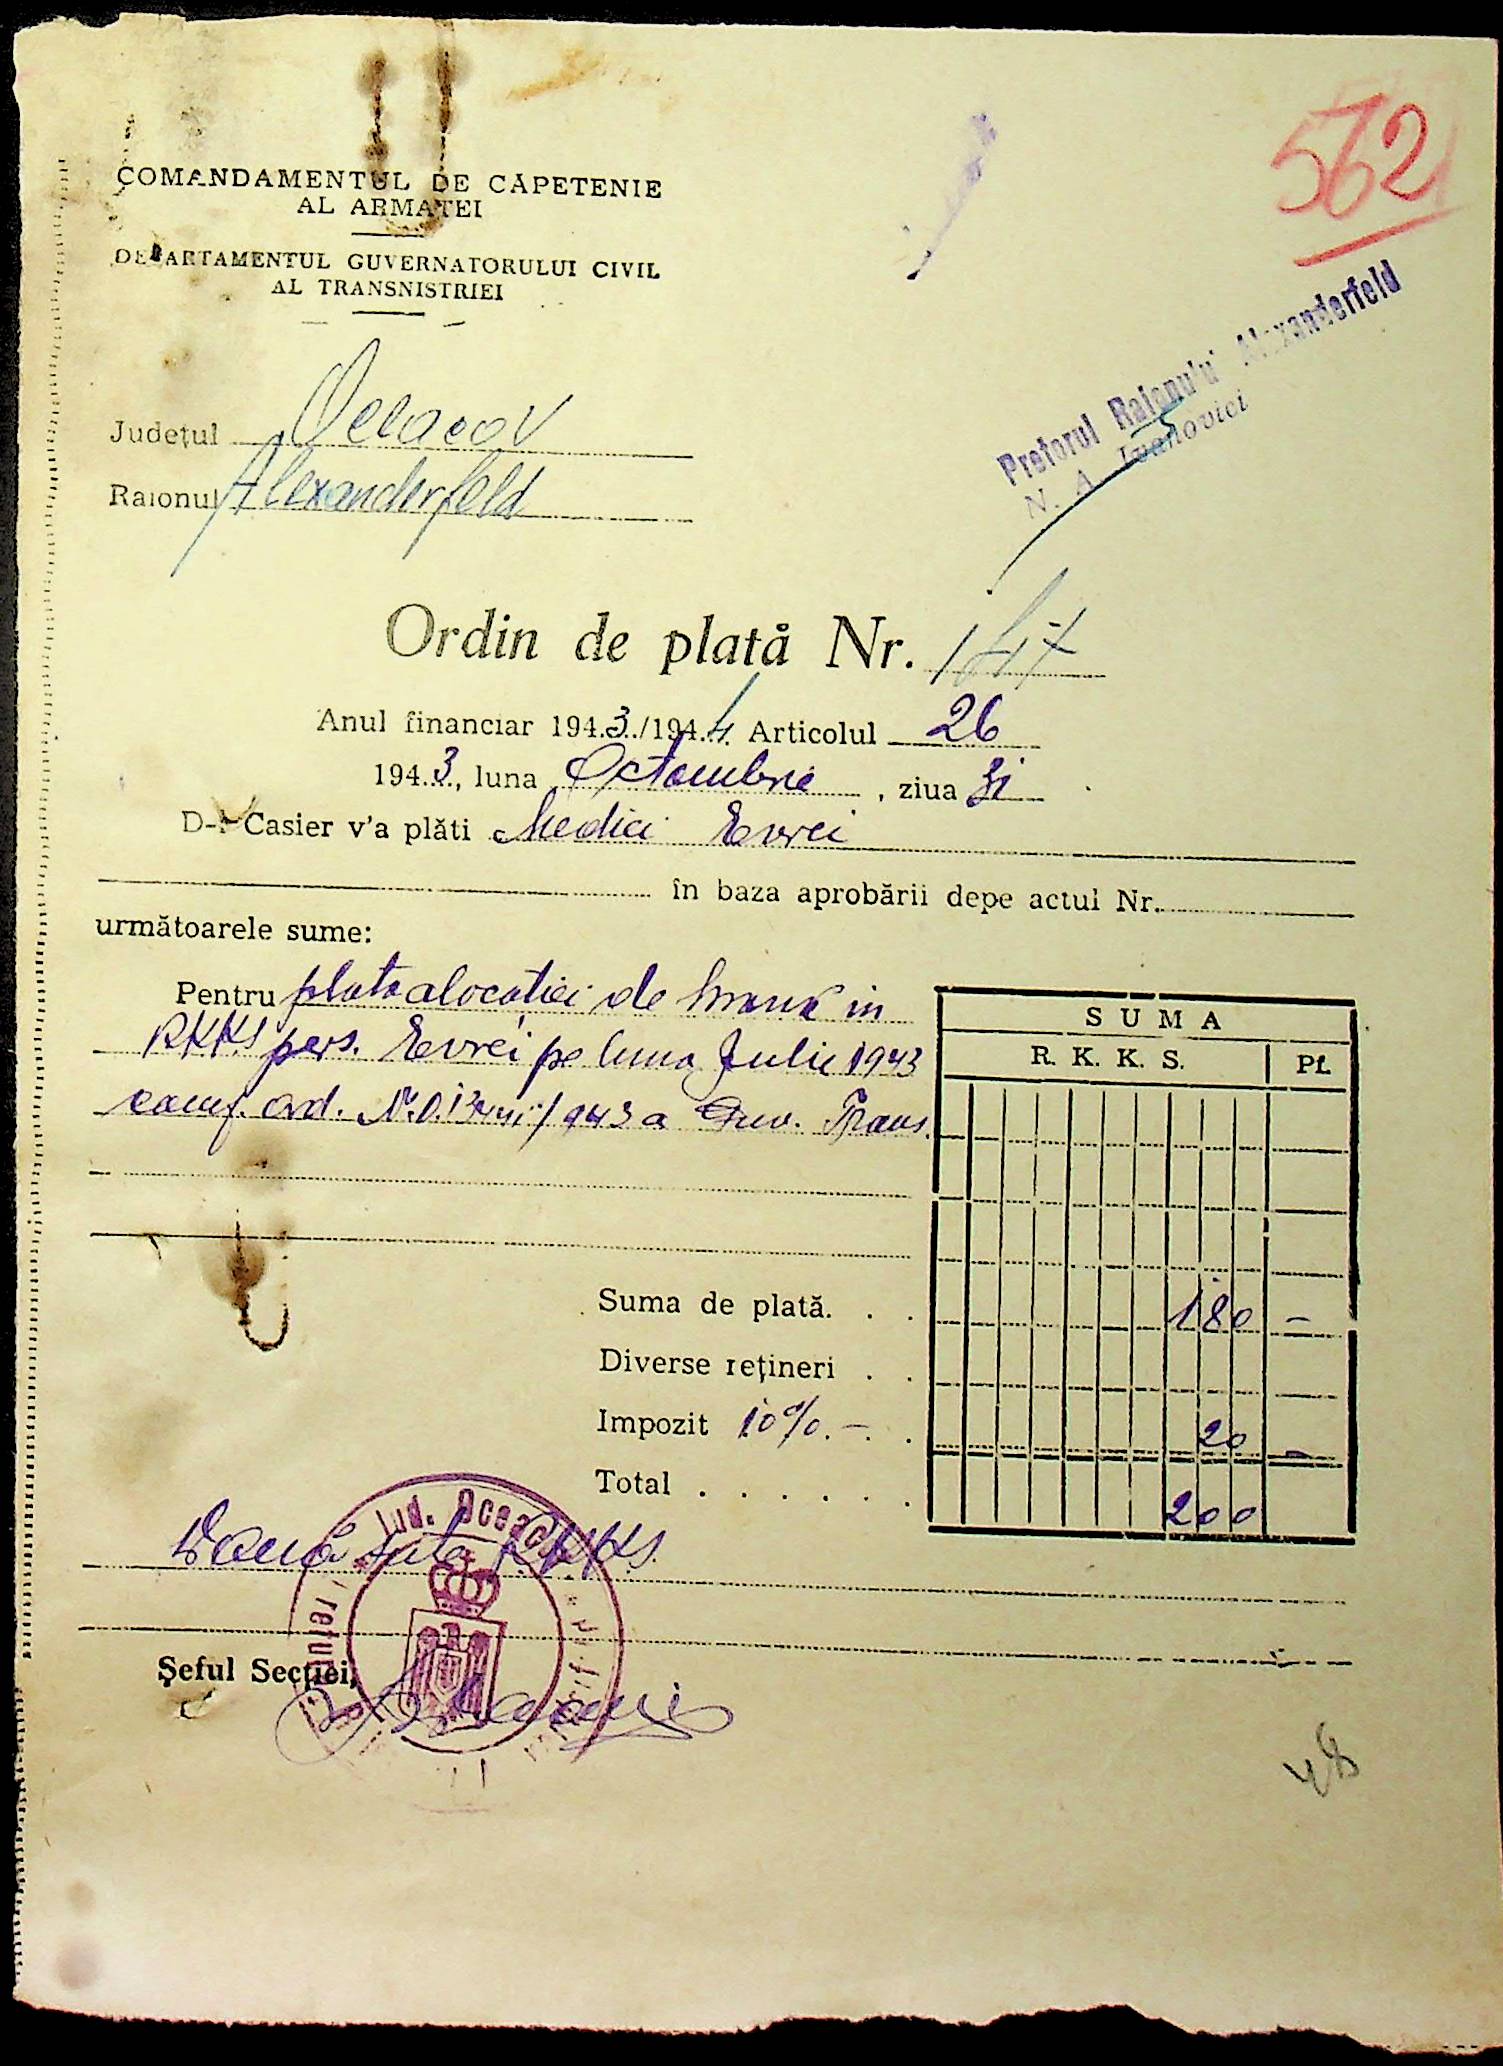 562
COMANDAMENTUL DE CAPETENIE
AL ARMATEI
DEPARTAMENTUL GUVERNATORULUI CIVIL
AL TRANSNISTRIEI
Pretorul Raionului Alexanderfeld
N. A. Ivanovici
Județul Oceacov
Raionul Alexanderfeld
Ordin de plată Nr. 147
Anul financiar 194.3./194.4. Articolul 26
194.3., luna Octombrie, ziua 31
D-l Casier v'a plăti Medici Evrei
în baza aprobării depe actul Nr.
următoarele sume:
Pentru plata alocatiei de hrană in
RKKS pers. Evrei pe luna Julie 1943
conf. ord. Guv. Trans.
SUMA
R. K. K. S. Pf.
Suma de plată. . . 180 –
Diverse rețineri . .
Impozit 10%. – . . 20 –
Total . . . . . . 200
Două sute RKKS.
Jud. Oceacov
Șeful Secției,
48